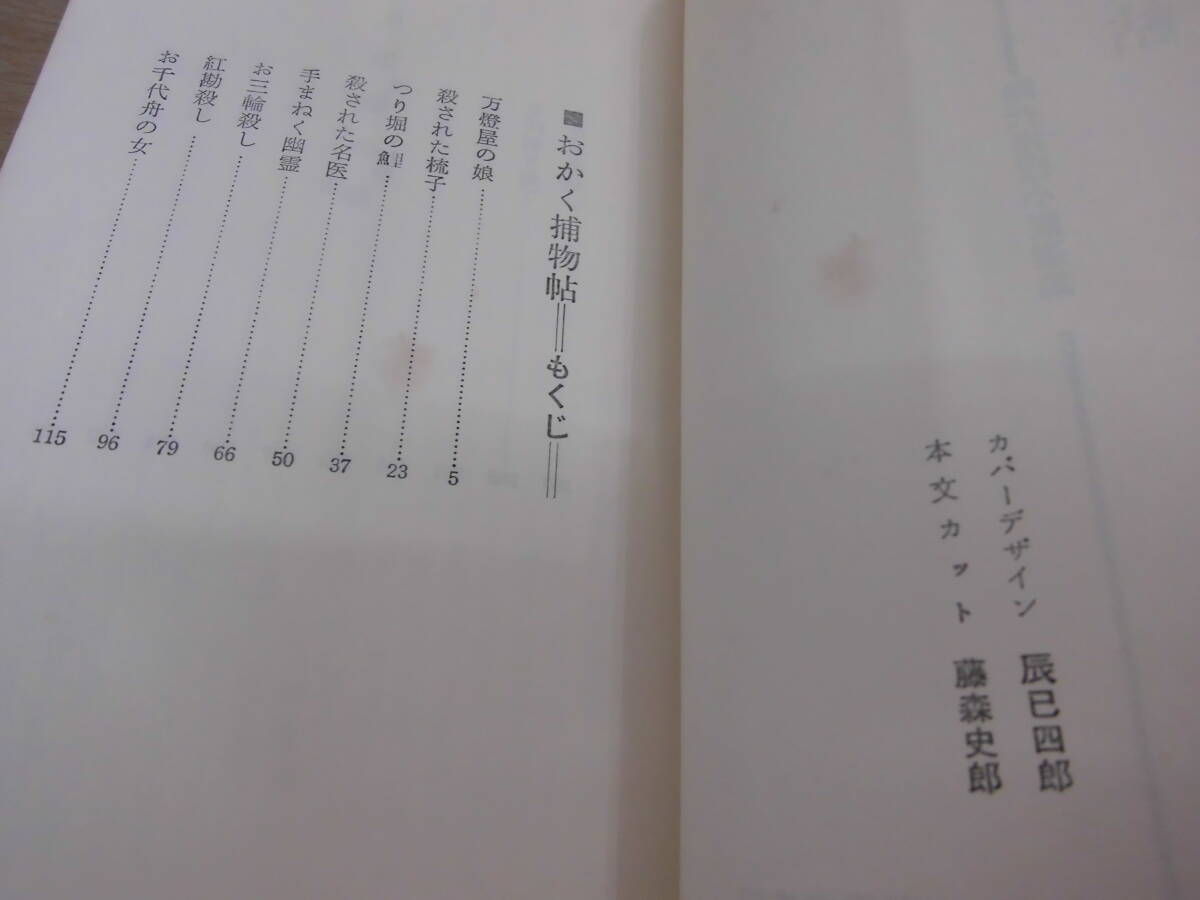 カバーデザイン 辰巳四郎
本文カット 藤森史郎
■おかく捕物帖＝もくじ＝
万燈屋の娘……5
殺された梳子……23
つり堀の魚……37
殺された名医……50
手まねく幽霊……66
お三輪殺し……79
紅勘殺し……96
お千代舟の女……115